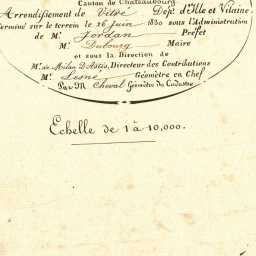 Canton de Chateaubourg
Arrondissement de Vitré Dépt d'Ille et Vilaine.
Terminé sur le terrein le 26 juin 1830 sous l'Administration
de Mr. Jordan Préfet
Mr. Dubourg Maire
et sous la Direction de
Mr. de Milan D'Astis, Directeur des Contributions
Mr. Lesné Géomètre en Chef
Par M Cheval Géomètre du Cadastre
Echelle de 1 à 10,000.